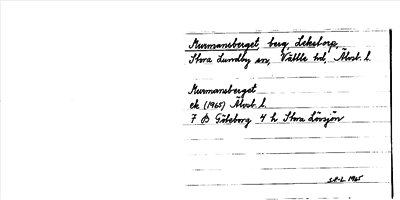 Murmansberget, berg, Lekstorp,
Stora Lundby sn, Vättle hd, Älvsb. l.
Murmansberget
ek (1965) Älvsb. l.
7 B Göteborg 4 h Stora Lövsjön
1965